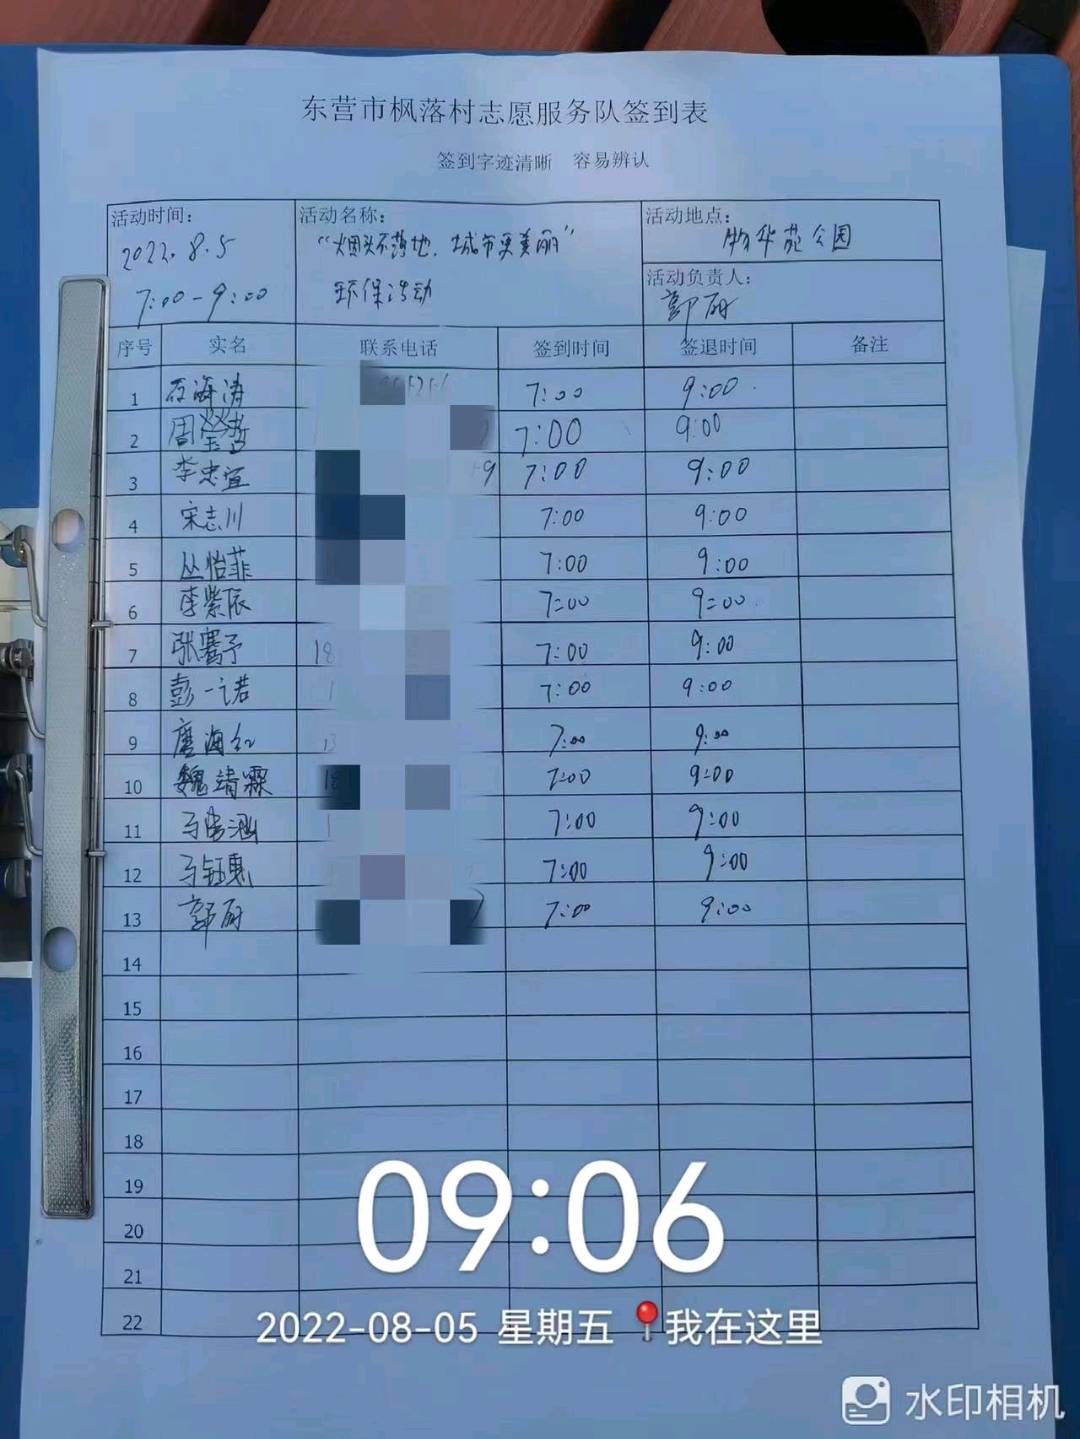 东营市枫落村志愿服务队签到表
签到字迹清晰 容易辨认
活动时间: 活动名称: 活动地点:
2022.8.5 “烟头不落地，城市更美丽” 物华苑公园
7:00-9:00 环保活动 活动负责人:
郭丽
序号 实名 联系电话 签到时间 签退时间 备注
1 石海涛 7:00 9:00
2 周莹哲 7:00 9:00
3 李忠宜 9 7:00 9:00
4 宋志川 7:00 9:00
5 丛怡菲 7:00 9:00
6 李紫辰 7:00 9:00
7 张骞予 18 7:00 9:00
8 彭一诺 1 7:00 9:00
9 唐海红 13 7:00 9:00
10 魏靖霖 18 7:00 9:00
11 1 7:00 9:00
12 马钰惠 7:00 9:00
13 郭丽 7:00 9:00
14
15
16
17
18
19
20
21
22
09:06
2022-08-05 星期五 我在这里
水印相机